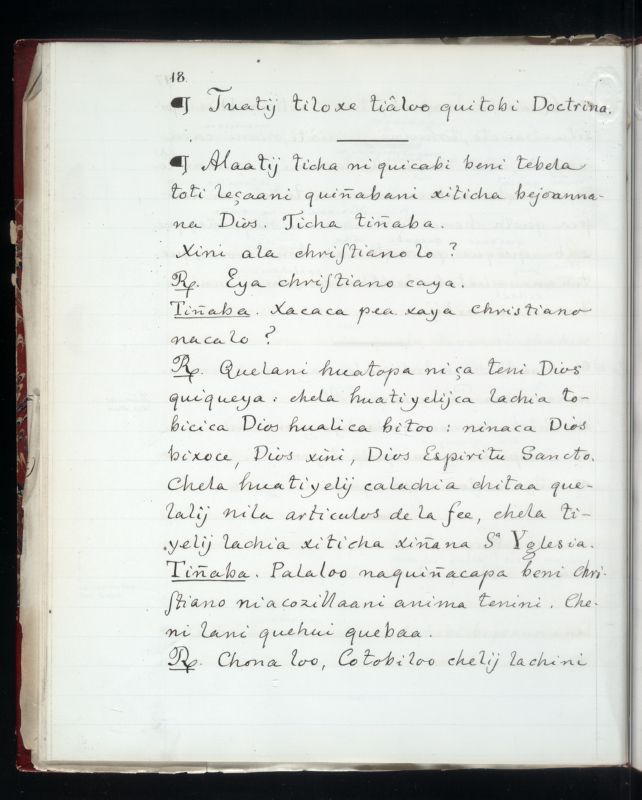 18.
¶ Tuatij tiloxe tiâloo quitobi Doctrina.
¶ Alaatij ticha ni quicabi beni tebela
toti leçaani quiñabani xiticha bejoanna-
na Dios. Ticha tiñaba.
Xini ala chriſtiano lo ?
Rp. Eya chriſtiano caya.
Tiñaba. Xacaca pea xaya christiano
nacalo ?
Rp. Quelani huatopa ni ça teni Dios
quiqueya : chela huatiyelijca lachia to-
bicica Dios hualica bitoo : ninaca Dios
bixoce, Dios xiñi, Dios Espiritu Sancto.
Chela huatiyelij calachia chitaa que-
lalij nila articulos de la fee, chela ti-
yelij lachia xiticha xiñana Sᵃ Yglesia.
Tiñaba. Palaloo naquiñacapa beni chri-
ſtiano niacozillaani anima tenini. Che-
ni lani quehui quebaa.
Rp. Chona loo, Cotobiloo chelij lachini